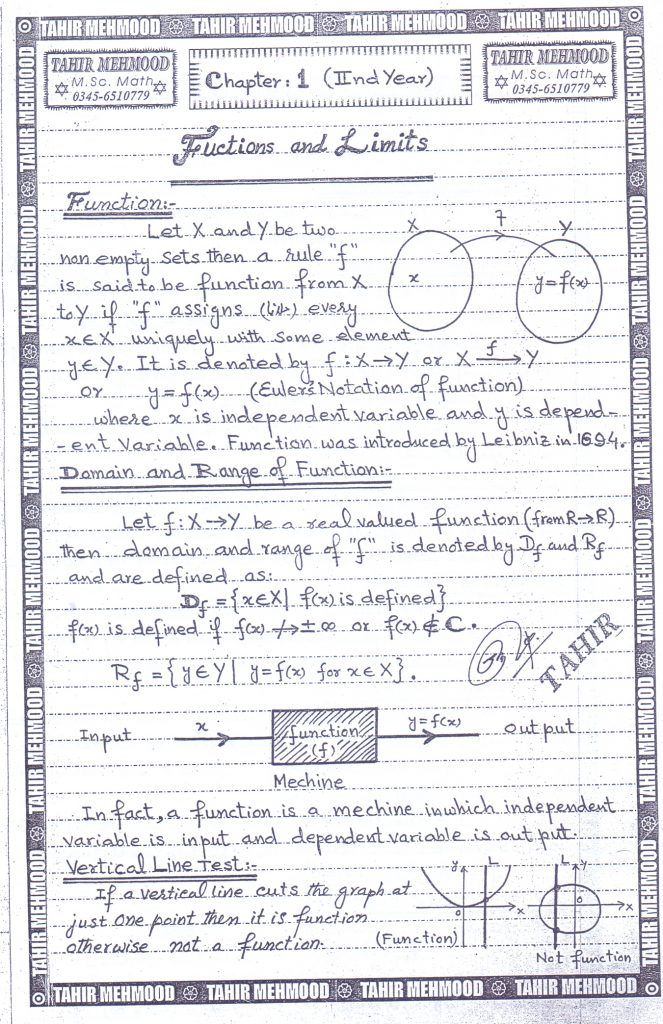 TAHIR MEHMOOD TAHIR MEHMOOD TAHIR MEHMOOD TAHIR MEHMOOD
TAHIR MEHMOOD
M.Sc. Math
0345-6510779
Chapter: 1 (IInd Year)
TAHIR MEHMOOD
M.Sc. Math
0345-6510779
Fuctions and Limits
Function:-
Let X and Y be two
non empty sets then a rule "f"
is said to be function from X
to Y if "f" assigns every
x∈X uniquely with some element
y∈Y. It is denoted by f : X→Y or X f→ Y
or y = f(x) (Euler's Notation of function)
where x is independent variable and y is depend-
-ent Variable. Function was introduced by Leibniz in 1694.
X
f
Y
x
y=f(x)
Domain and Range of Function:-
Let f : X→Y be a real valued function (from R→R)
then domain and range of "f" is denoted by Df and Rf
and are defined as:
Df = {x∈X| f(x) is defined}
f(x) is defined if f(x) ↛ ±∞ or f(x) ∉ C.
Rf = {y∈Y | y=f(x) for x∈X}.
TAHIR
Input x function (f) y=f(x) out put
Mechine
In fact, a function is a mechine in which independent
variable is input and dependent variable is out put.
Vertical Line Test:-
If a vertical line cuts the graph at
just one point then it is function
otherwise not a function.
y L
o x
(Function)
L y
o x
Not function
TAHIR MEHMOOD TAHIR MEHMOOD TAHIR MEHMOOD TAHIR MEHMOOD
TAHIR MEHMOOD TAHIR MEHMOOD TAHIR MEHMOOD TAHIR MEHMOOD TAHIR MEHMOOD TAHIR MEHMOOD
TAHIR MEHMOOD TAHIR MEHMOOD TAHIR MEHMOOD TAHIR MEHMOOD TAHIR MEHMOOD TAHIR MEHMOOD